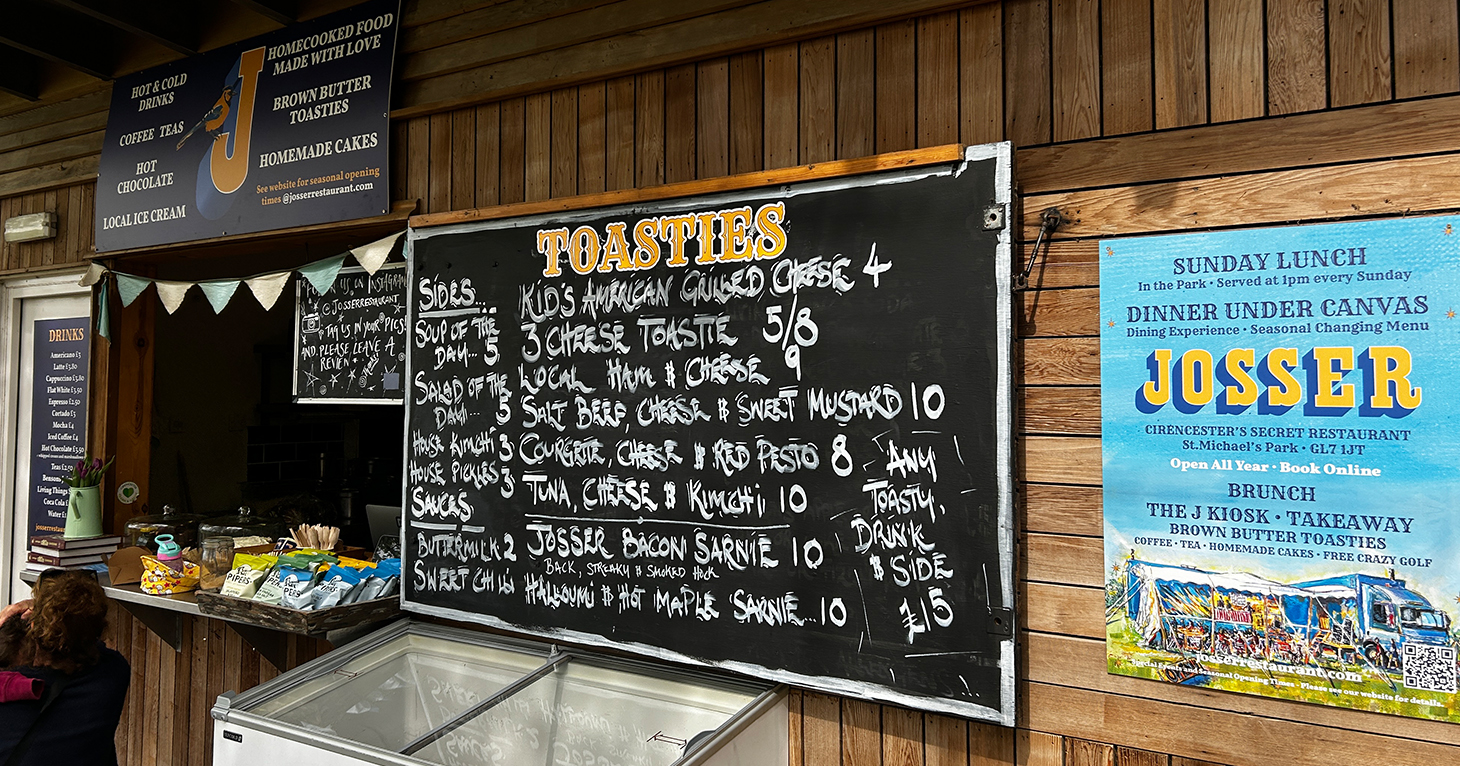 HOT & COLD
DRINKS
COFFEE TEAS
HOT
CHOCOLATE
LOCAL ICE CREAM
J
HOMECOOKED FOOD
MADE WITH LOVE
BROWN BUTTER
TOASTIES
HOMEMADE CAKES
See website for seasonal opening
times @josserrestaurant.com
US ON INSTAGRAM
@JOSSERRESTAURANT
TAG US IN YOUR PICS!
AND PLEASE LEAVE A
REVIEW
DRINKS
Americano £3
Latte £3.80
Cappuccino £3.80
Flat White £3.50
Espresso £2.50
Cortado £3
Mocha £4
Iced Coffee £4
Hot Chocolate £3.50
Teas
Living Things
Coca Cola
Water
PIPERS
TOASTIES
SIDES...
SOUP OF THE
DAY... 5
SALAD OF THE
DAY... 5
HOUSE KIMCHI 3
HOUSE PICKLES 3
SAUCES
BUTTERMILK 2
SWEET CHILLI
KID'S AMERICAN GRILLED CHEESE 4
3 CHEESE TOASTIE 5/8
LOCAL HAM & CHEESE 9
SALT BEEF, CHEESE & SWEET MUSTARD 10
COURGETTE, CHEESE & RED PESTO 8
TUNA, CHEESE & KIMCHI 10
JOSSER BACON SARNIE 10
BACK, STREAKY & SMOKED HOCK
HALLOUMI & HOT MAPLE SARNIE... 10
ANY
TOASTY,
DRINK
& SIDE
£15
SUNDAY LUNCH
In the Park • Served at 1pm every Sunday
DINNER UNDER CANVAS
Dining Experience • Seasonal Changing Menu
JOSSER
CIRENCESTER'S SECRET RESTAURANT
St.Michael's Park • GL7 1JT
Open All Year • Book Online
BRUNCH
THE J KIOSK • TAKEAWAY
BROWN BUTTER TOASTIES
COFFEE • TEA • HOMEMADE CAKES • FREE CRAZY GOLF
josserrestaurant.com
Special Events and Seasonal Opening Times - Please see our website for details.